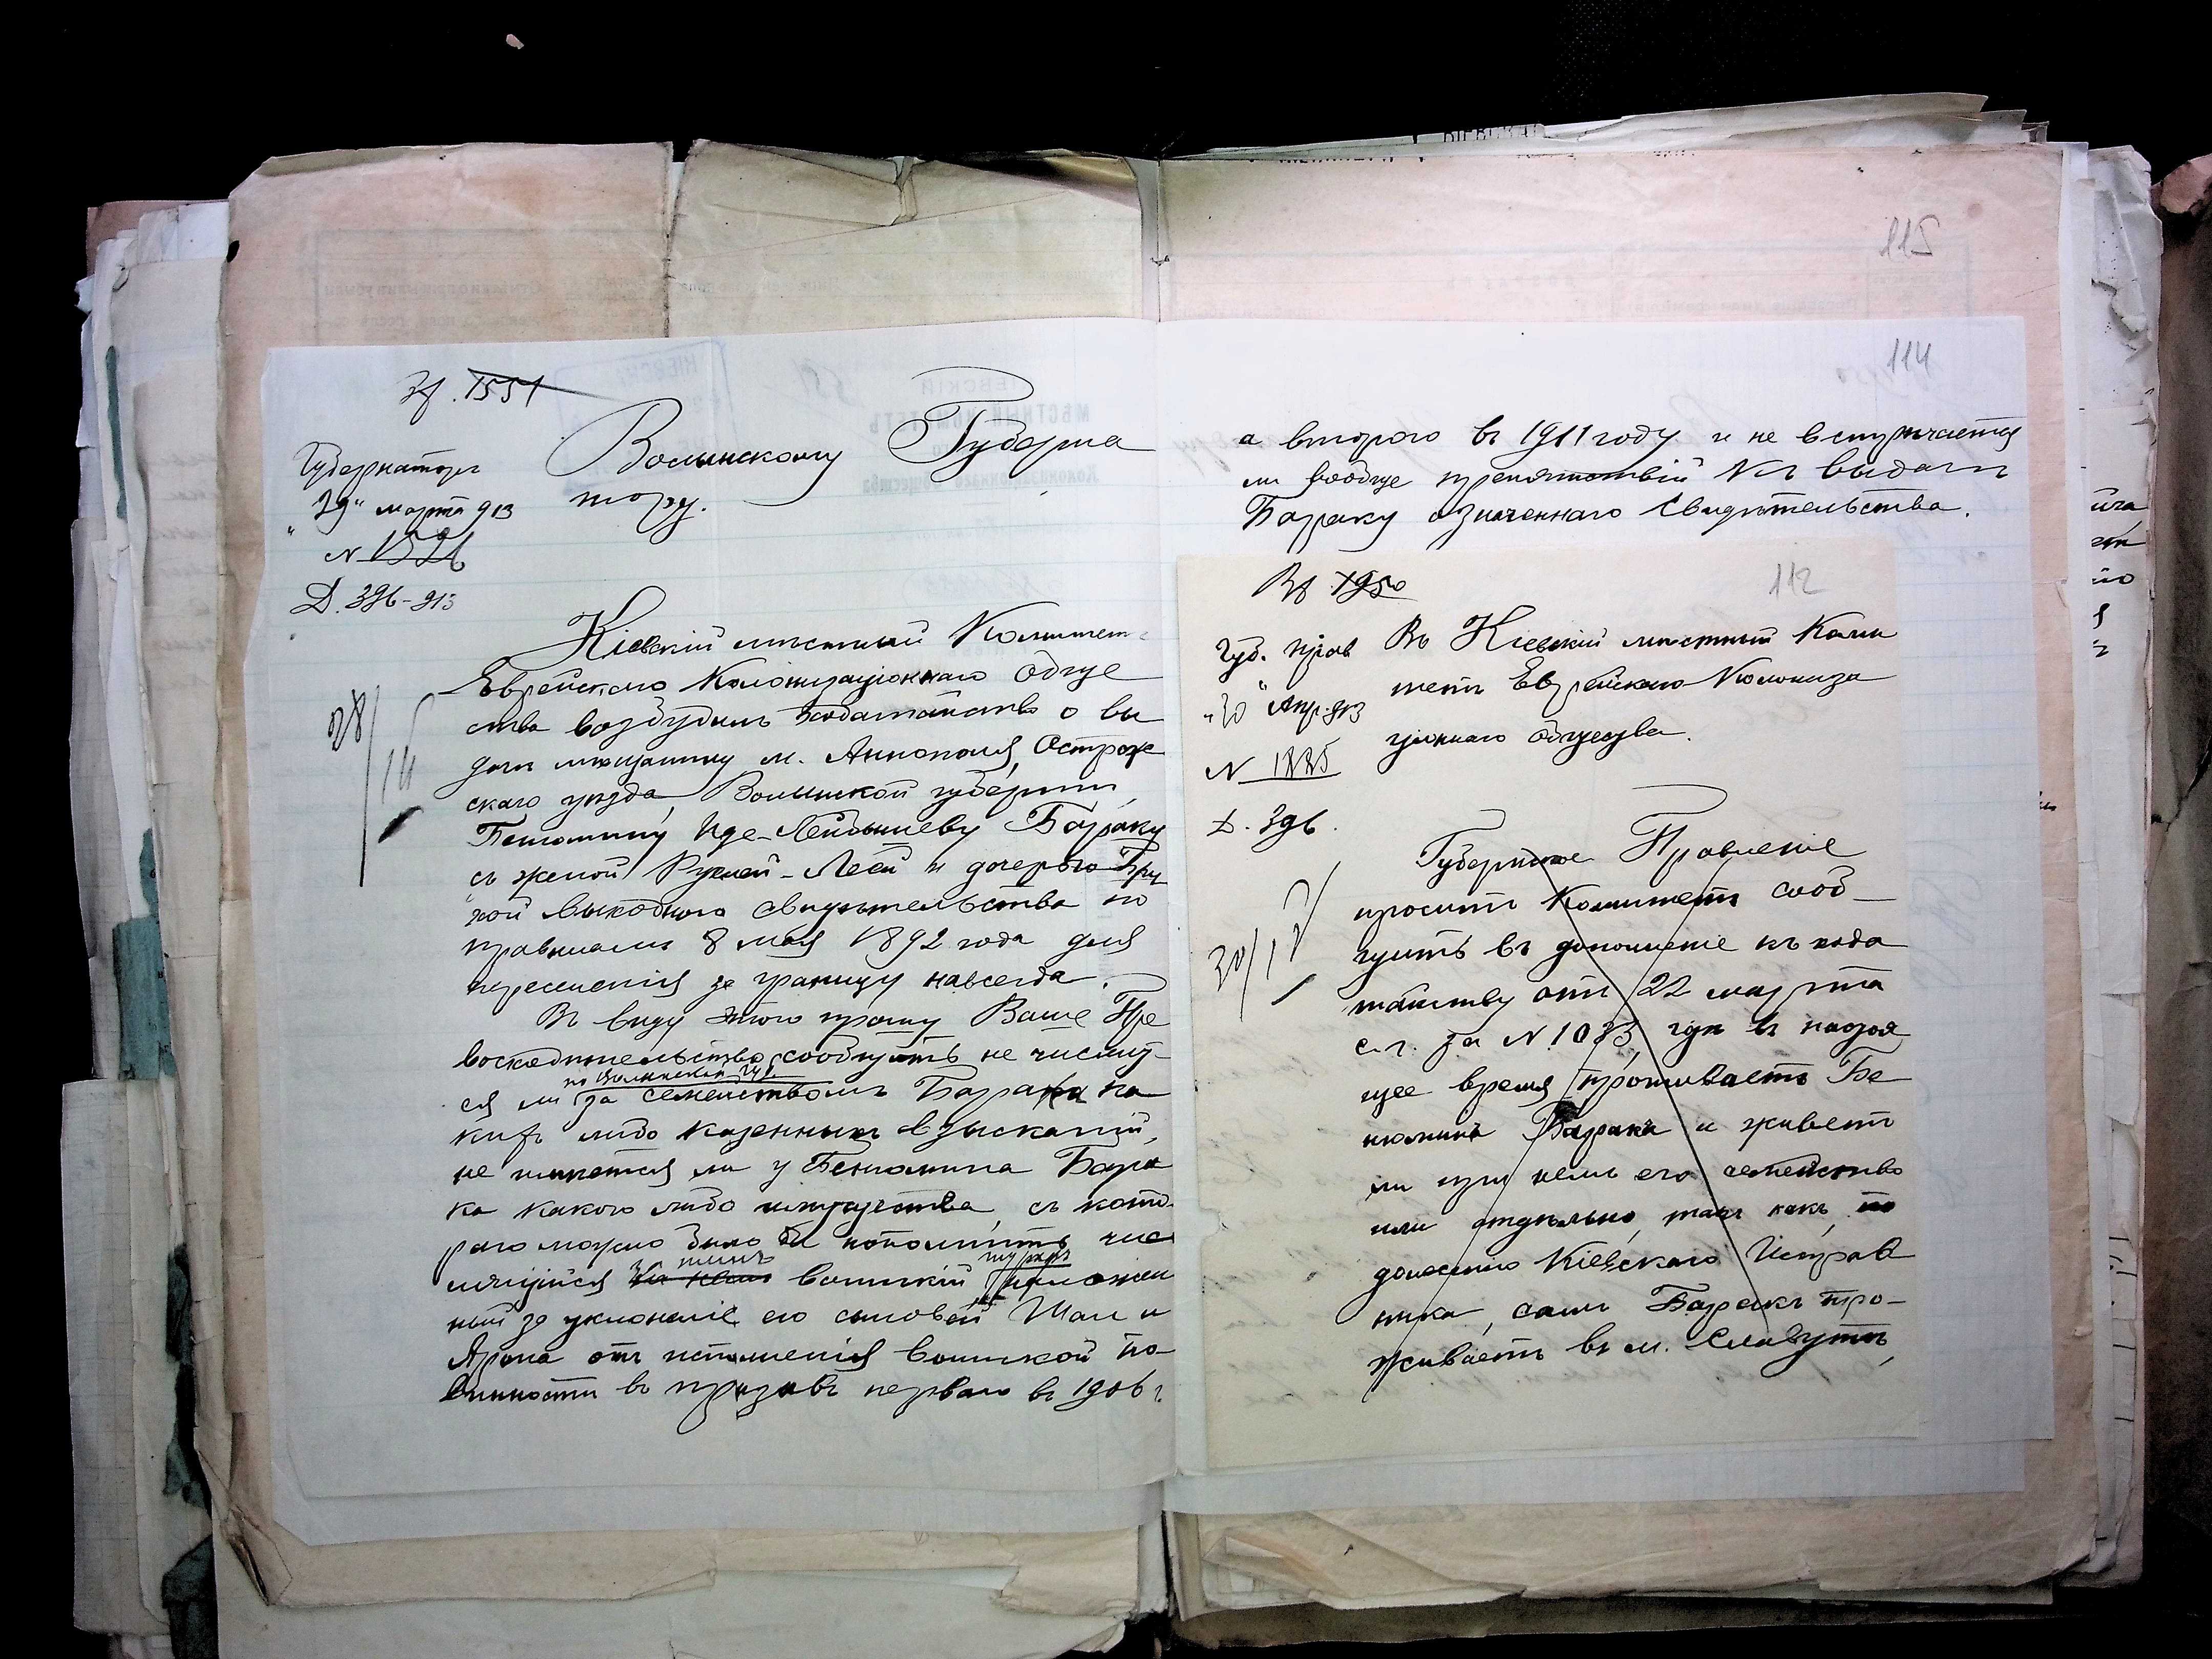 Вх. 1551
Губернаторъ
"29" марта 913
N 1521
Д. 396-913
Волынскому Губерна
тору.
28/III
Кіевскій мѣстный Комитетъ
Еврейскаго Колонизаціоннаго Обще
ства возбудилъ ходатайство о вы
дачѣ мѣщанину м. Аннополя, Острож
скаго уѣзда, Волынской губерніи,
Беніомину Иде-Лейбышеву Бараку
съ женой Рухлей-Леей и дочерью
выходного свидѣтельства по
правиламъ 8 мая 1892 года для
переселенія за границу навсегда.
Въ виду этого прошу Ваше Пре
восходительство сообщить не числит
по Волынской губ.
ся ли за семействомъ Барака ка
кихъ либо казенныхъ взысканій,
не имѣется ли у Беніомина Бара
ка какого либо имущества, съ кото
раго можно было бы пополнить чис
за нимъ штрафъ
лящійся воинскій наложен
ный за уклоненіе его сыновей Шаи и
Арона отъ исполненія воинской по
винности въ призывъ перваго въ 1906 г.
115
114
а второго въ 1911 году и не встрѣчается
ли вообще препятствій къ выдачѣ
Бараку означеннаго свидѣтельства.
112
Вх 1950
Губ. Прав
"30" Апр. 913
N 1885
Д. 396.
Въ Кіевскій мѣстный Коми
тетъ Еврейскаго Колониза
ціоннаго Общества.
30/IV
Губернское Правленіе
проситъ Комитетъ сооб
щить въ дополненіе къ хода
тайству отъ 22 марта
с. г. за N 1083, гдѣ въ настоя
щее время проживаетъ Бе
ніоминъ Баракъ и живетъ
ли при немъ его семейство
или отдѣльно, такъ какъ, по
донесенію Кіевскаго Исправ
ника, самъ Баракъ про-
живаетъ въ м. Славутѣ,